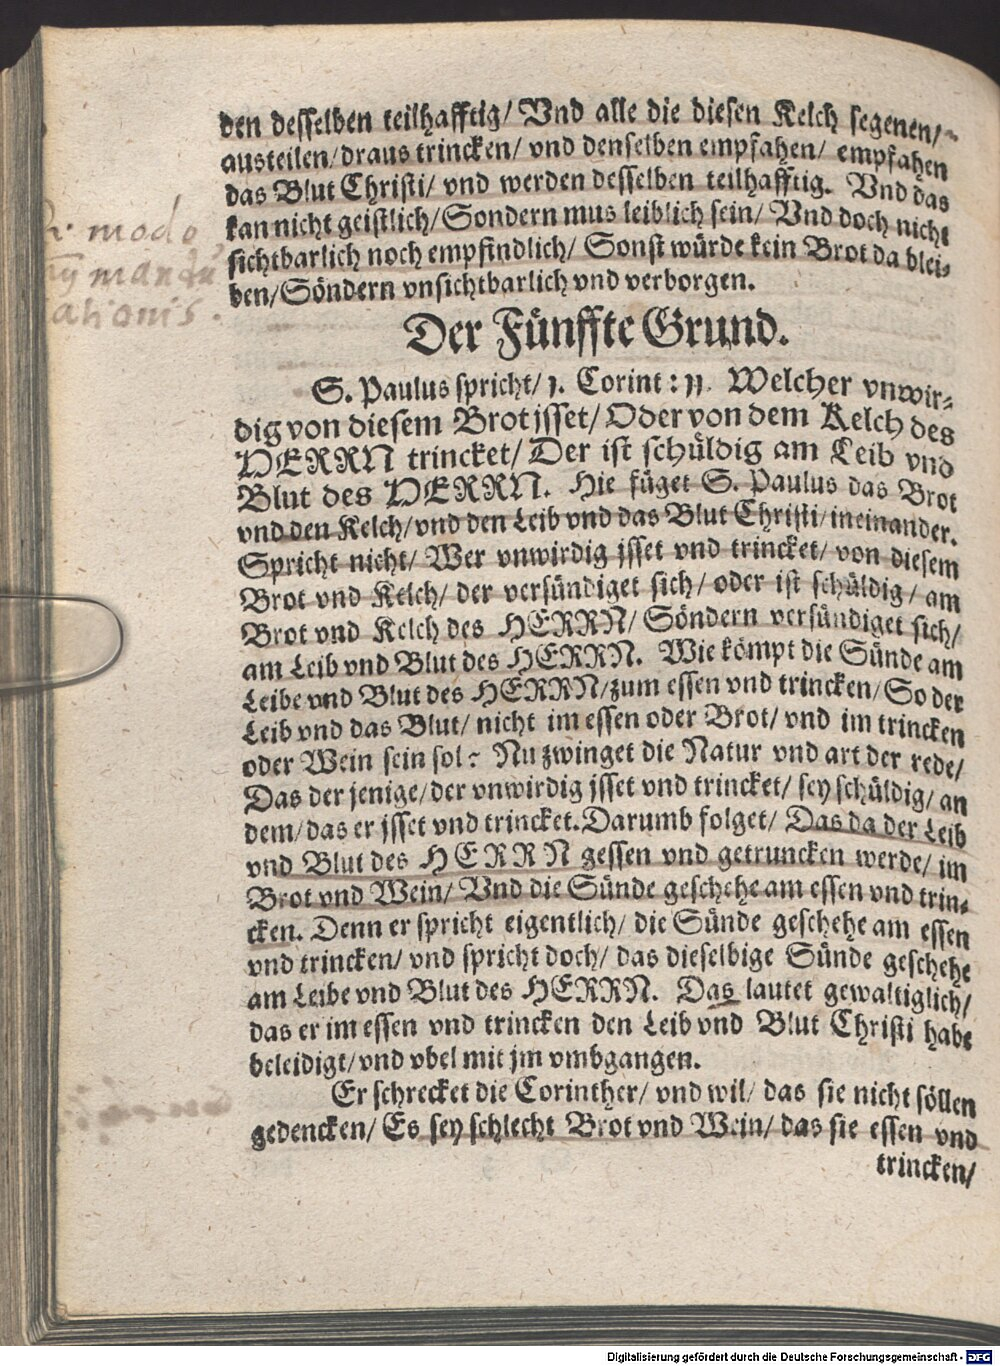 den desselben teilhafftig/ Vnd alle die diesen Kelch segenen/
austeilen/draus trincken/ vnd denselben empfahen/ empfahen
das Blut Christi/ vnd werden desselben teilhafftig. Vnd das
kan nicht geistlich/Sondern mus leiblich sein/ Vnd doch nicht
sichtbarlich noch empfindlich/ Sonst würde kein Brot da blei-
ben/Söndern vnsichtbarlich vnd verborgen.
modo
ationis.
Der Fünffte Grund.
S. Paulus spricht/ 1. Corint: 11. Welcher vnwir-
dig von diesem Brot jsset/ Oder von dem Kelch des
HERRN trincket/ Der ist schüldig am Leib vnd
Blut des HERRN. Hie füget S. Paulus das Brot
vnd den Kelch/vnd den Leib vnd das Blut Christi/ineinander.
Spricht nicht/ Wer vnwirdig jsset vnd trincket/ von diesem
Brot vnd Kelch/ der versündiget sich/ oder ist schüldig/ am
Brot vnd Kelch des HERRN/ Söndern versündiget sich/
am Leib vnd Blut des HERRN. Wie kömpt die Sünde am
Leibe vnd Blut des HERRN/zum essen vnd trincken/So der
Leib vnd das Blut/ nicht im essen oder Brot/ vnd im trincken
oder Wein sein sol? Nu zwinget die Natur vnd art der rede/
Das der jenige/der vnwirdig jsset vnd trincket/ sey schüldig/ an
dem/das er jsset vnd trincket.Darumb folget/ Das da der Leib
vnd Blut des HERRN gessen vnd getruncken werde/ im
Brot vnd Wein/ Vnd die Sünde geschehe am essen vnd trin-
cken. Denn er spricht eigentlich/ die Sünde geschehe am essen
vnd trincken/ vnd spricht doch/ das dieselbige Sünde geschehe
am Leibe vnd Blut des HERRN. Das lautet gewaltiglich/
das er im essen vnd trincken den Leib vnd Blut Christi habe
beleidigt/vnd vbel mit jm vmbgangen.
Er schrecket die Corinther/ vnd wil/ das sie nicht söllen
gedencken/ Es sey schlecht Brot vnd Wein/ das sie essen vnd
trincken/
Digitalisierung gefördert durch die Deutsche Forschungsgemeinschaft - DFG